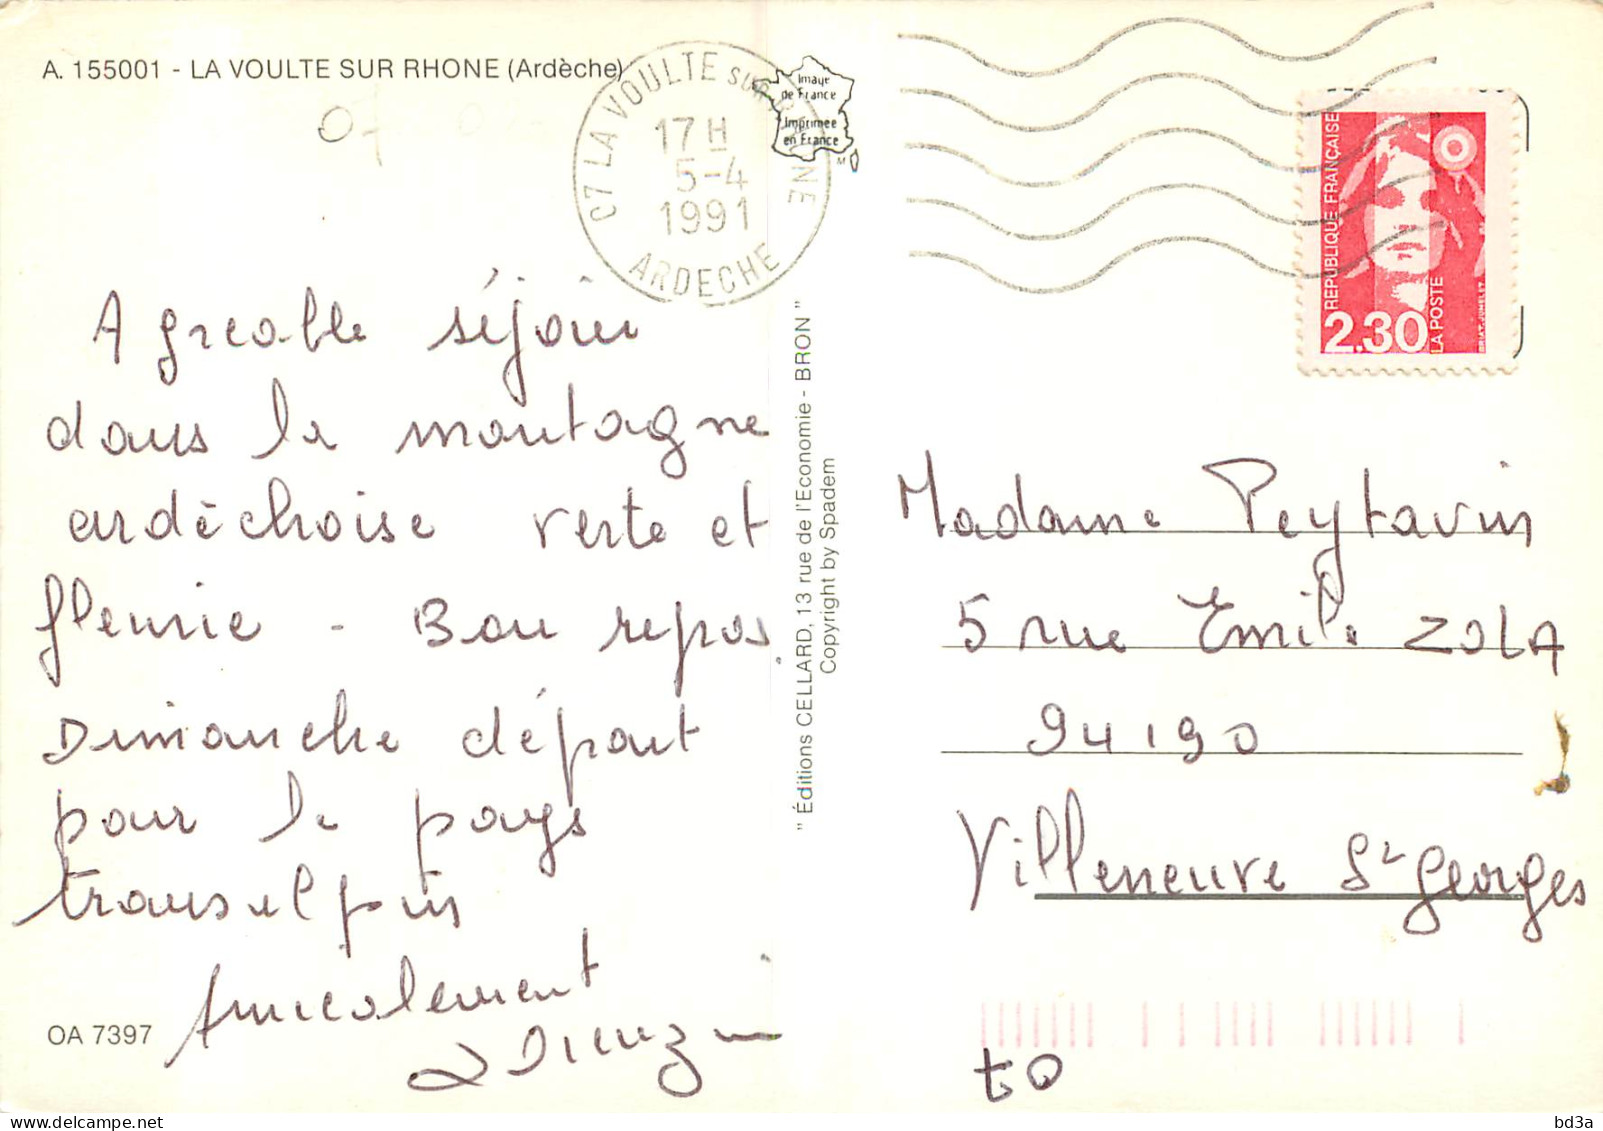 A. 155001 - LA VOULTE SUR RHONE (Ardèche)
07
C7 LA VOULTE SUR RHONE
17 H
5-4
1991
ARDECHE
Image
de France
Imprimée
en France
REPUBLIQUE FRANÇAISE
2.30
LA POSTE
Agreable séjour
dans la montagne
ardèchoise verte et
fleurie - Bon repos
Dimanche départ
pour le pays
transalpin
Amicalement
OA 7397
" Éditions CELLARD, 13 rue de l'Economie - BRON "
Copyright by Spadem
Madame Peytavin
5 rue Emile ZOLA
94190
Villeneuve St Georges
to
bd3a